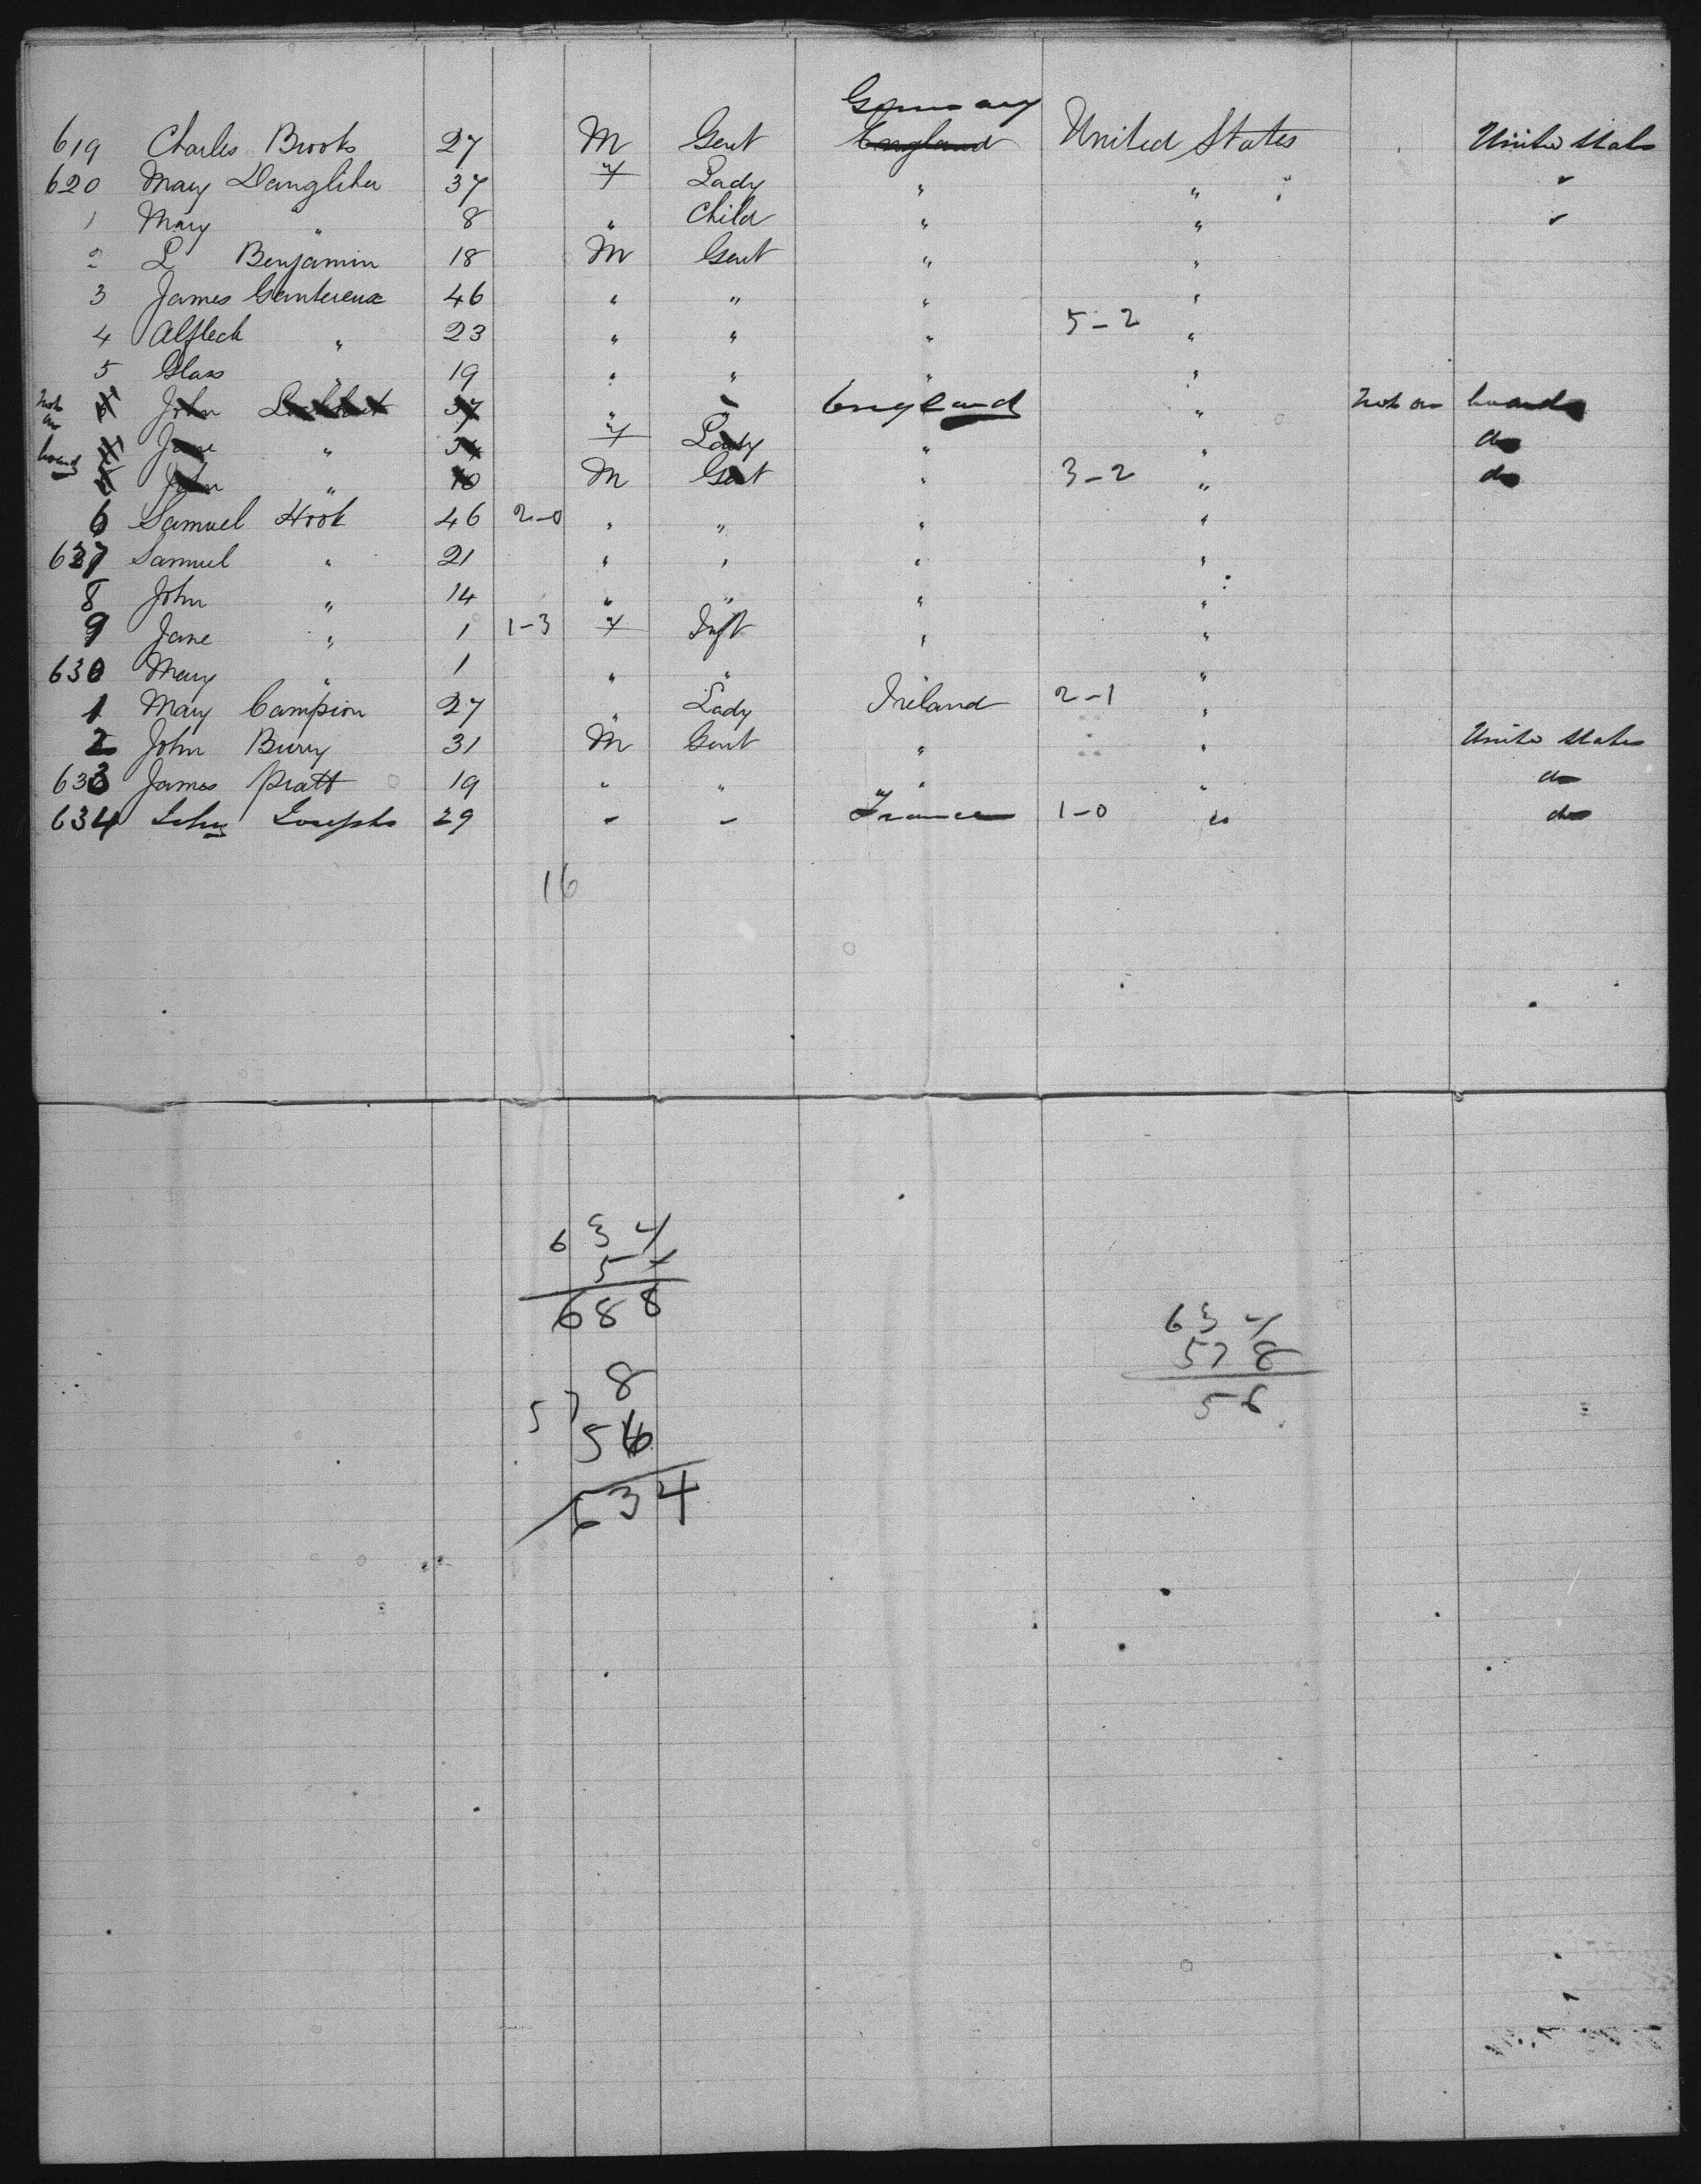 Germany
619 Charles Brooks 27 M Gent England United States United States
620 Mary Dangliher 37 F Lady " " "
1 Mary " 8 " Child " " "
2 L Benjamin 18 M Gent " "
3 James Gantereux 46 " " " "
4 Alfleck " 23 " " " 5-2 "
5 Glass " 19 " " " "
Not on board John 37 " " England " Not on board
Jane " F Lady " " do
John " 10 M Gent " 3-2 " do
6 Samuel Hook 46 2-0 " " " "
627 Samuel " 21 " " " "
8 John " 14 " " " "
9 Jane " 1 1-3 F Inft " "
630 Mary " 1 " " " "
1 Mary Campion 27 " Lady Ireland 2-1 "
2 John Burry 31 M Gent " " United States
633 James Pratt 19 " " " " do
634 Josephs 29 " " France 1-0 " do
16
634
54
688
578
56
634
634
578
56